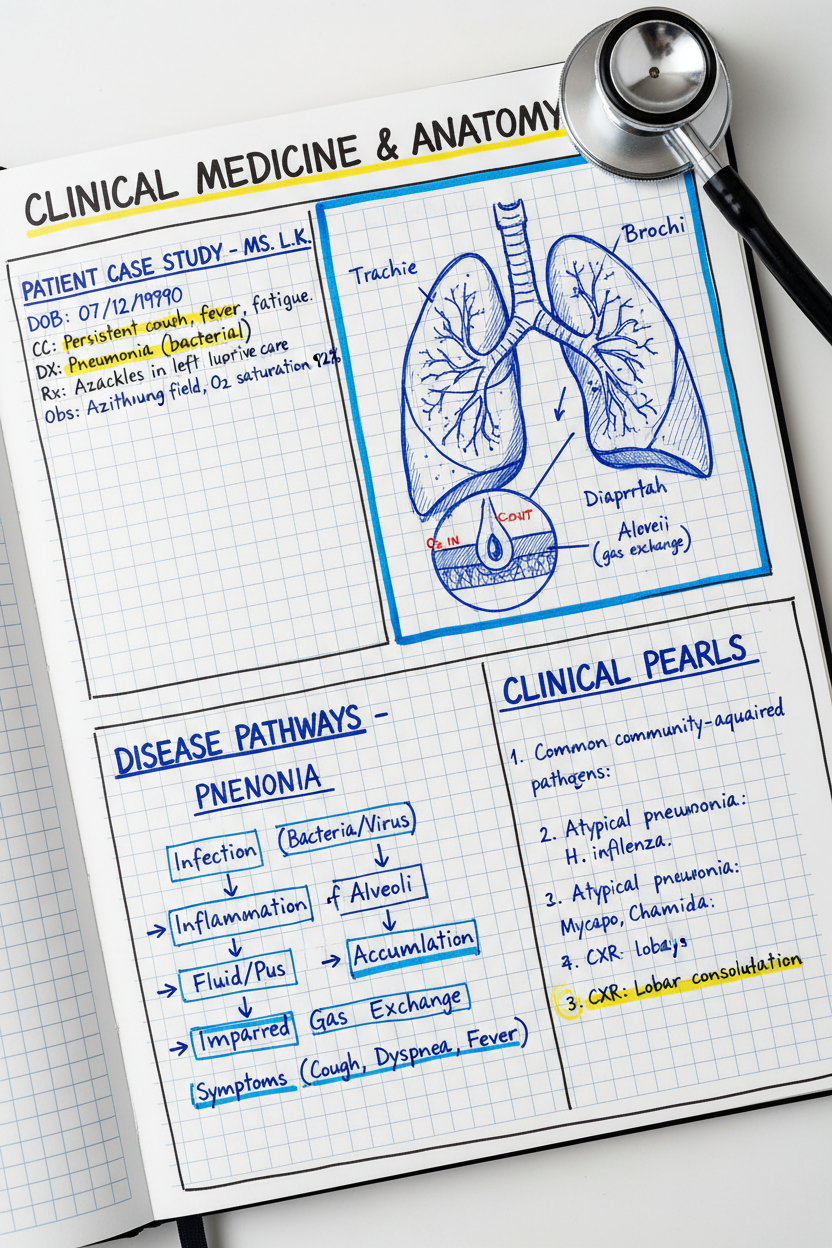 CLINICAL MEDICINE & ANATOMY
PATIENT CASE STUDY - MS. L.K.
DOB: 07/12/19990
CC: Persistent cough, fever, fatigue.
DX: Pneumonia (bacterial)
Rx: Azackles in left luprive care
Obs: Azithiung field, O₂ saturation 92%
Trachie
Brochi
Diaprrtah
O₂ IN
COUT
Aloveii
(gas exchange)
DISEASE PATHWAYS -
PNENONIA
Infection (Bacteria/Virus)
Inflammation of Alveoli
Fluid/Pus Accumlation
Imparred Gas Exchange
Symptoms (Cough, Dyspnea, Fever)
CLINICAL PEARLS
1. Common community-aquaired
pathgens:
2. Atypical pneumonia:
H. infilenza.
3. Atypical pneuronia:
Mycapo, Chamida:
4. CXR: lobays
3. CXR: Lobar consolutation